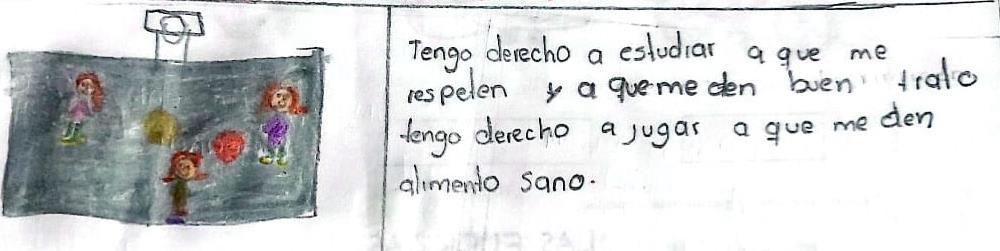 Tengo derecho a estudiar a que me
respeten y a que me den buen trato
tengo derecho a jugar a que me den
alimento sano.